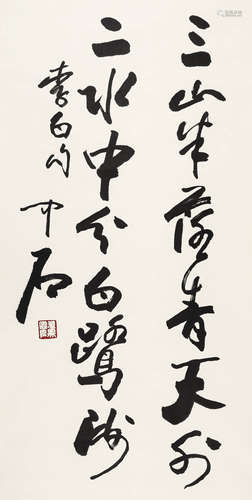 三山半落青天外
二水中分白鹭洲
李白句 中石